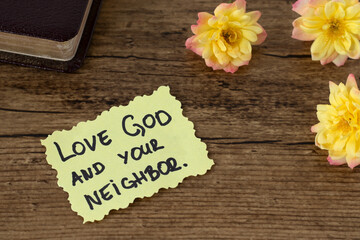 LOVE GOD
AND YOUR
NEIGHBOR.